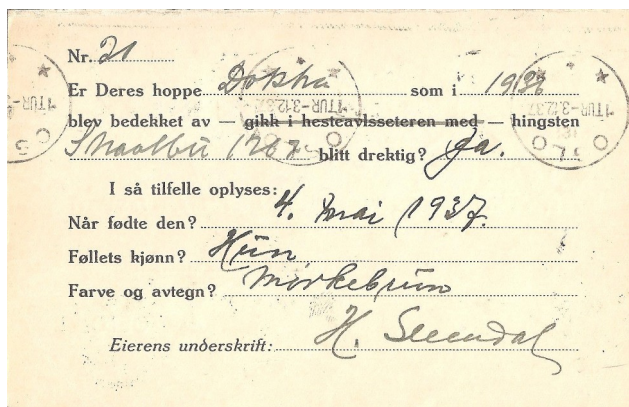 Nr. 21
Er Deres hoppe Dokka som i 1936
blev bedekket av — gikk i hesteavlsseteren med — hingsten
1207 blitt drektig? Ja.
I så tilfelle oplyses:
Når fødte den? 4. mai 1937.
Føllets kjønn? Hun
Farve og avtegn? Mørkebrun
Eierens underskrift: H.
1TUR-3.12.37
OSLO